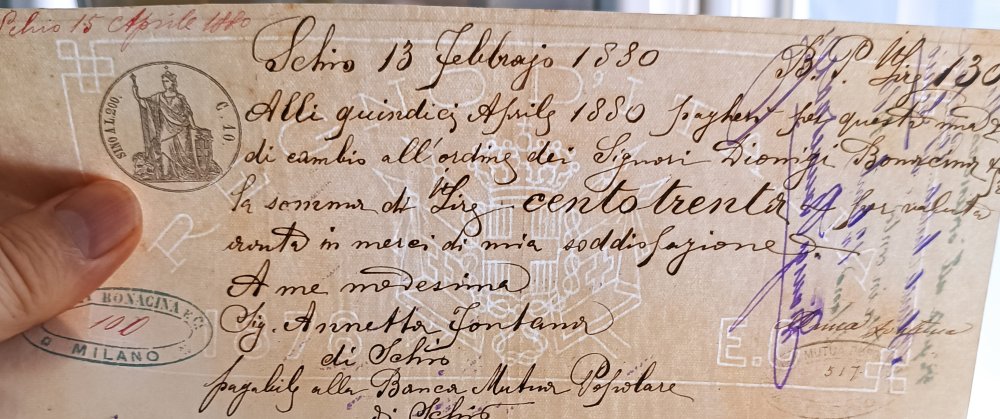 Schio 15 Aprile 1880
Schio 13 Febbrajo 1880
B. P. Lire 130
SINO A L. 200.
C. 10
REGNO D'ITALIA
Alli quindici Aprile 1880 pagherò per questa mia
di cambio all'ordine dei Signori Dionigi Bonacina
la somma di Lire centotrenta per valuta
avuta in merci di mia soddisfazione
A me medesima
Sig. Annetta Fontana
di Schio
pagabile alla Banca Mutua Popolare
di Schio
BONACINA & C.
100
MILANO
1878
E.
MUTUA
517